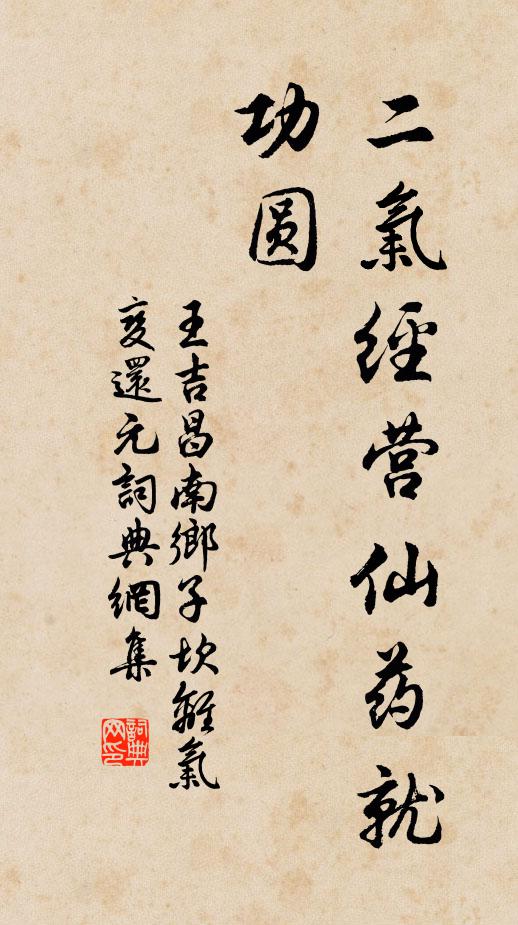 二氣經营仙药就
功圆
王吉昌南鄉子坎離氣
变還元詞典網集
詞典
网印